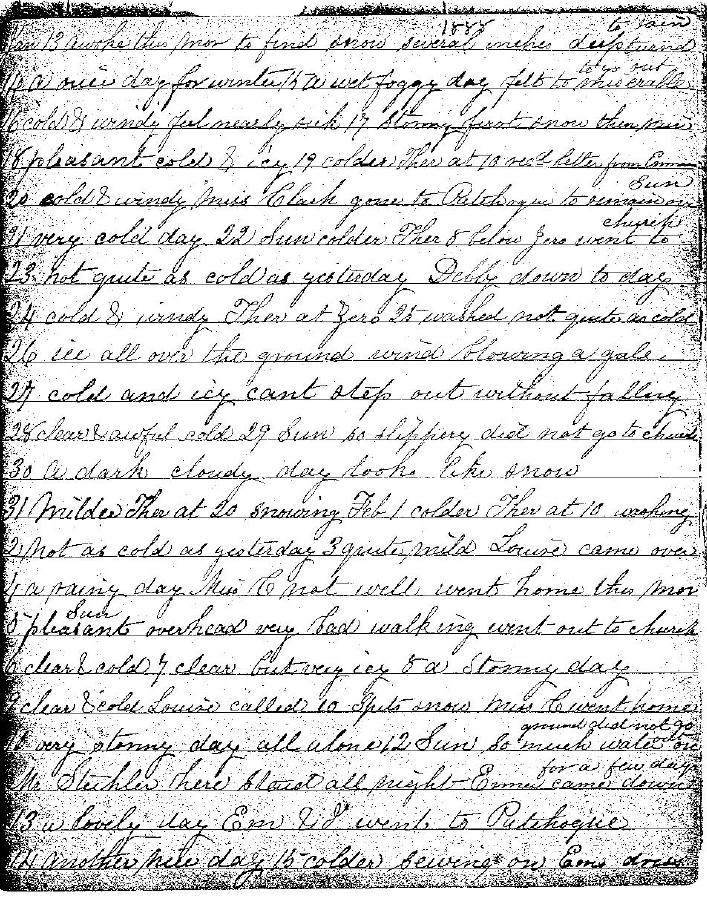 1888
to rain
Jan 13 awoke this mor to find snow several inches deep turnd
to go out
14 a nice day for winter 15 a wet foggy day felt to miserable
16 cold & windy feel nearly sick 17 stormy first snow then rain
18 pleasant cold & icy 19 colder Ther at 10 recd letter from Emma
Sun
20 cold & windy Miss Clark gone to Patchogue to remain over
church
21 very cold day 22 Sun colder Ther 8 below zero went to
23 not quite as cold as yesterday Debby down to day
24 cold & windy Ther at Zero 25 washed not quite as cold
26 ice all over the ground wind blowing a gale
27 cold and icy cant step out without falling
28 clear & awful cold 29 Sun so slippery did not go to church
30 a dark cloudy day looks like snow
31 Milder Ther at 20 snowing Feb 1 colder Ther at 10 washing
2 not as cold as yesterday 3 quite mild Louise came over
4 a rainy day Miss C not well went home this mor
Sun
5 pleasant overhead very bad walking went out to church
6 clear & cold 7 clear but very icy 8 a Stormy day
9 clear & cold Louise called 10 Spits snow Miss C went home
ground did not go
very stormy day all alone 12 Sun so much water on
for a few days
Mr here staid all night Emma came down
13 a lovely day Em & I went to Patchogue
14 another nice day 15 colder sewing on Ems dress